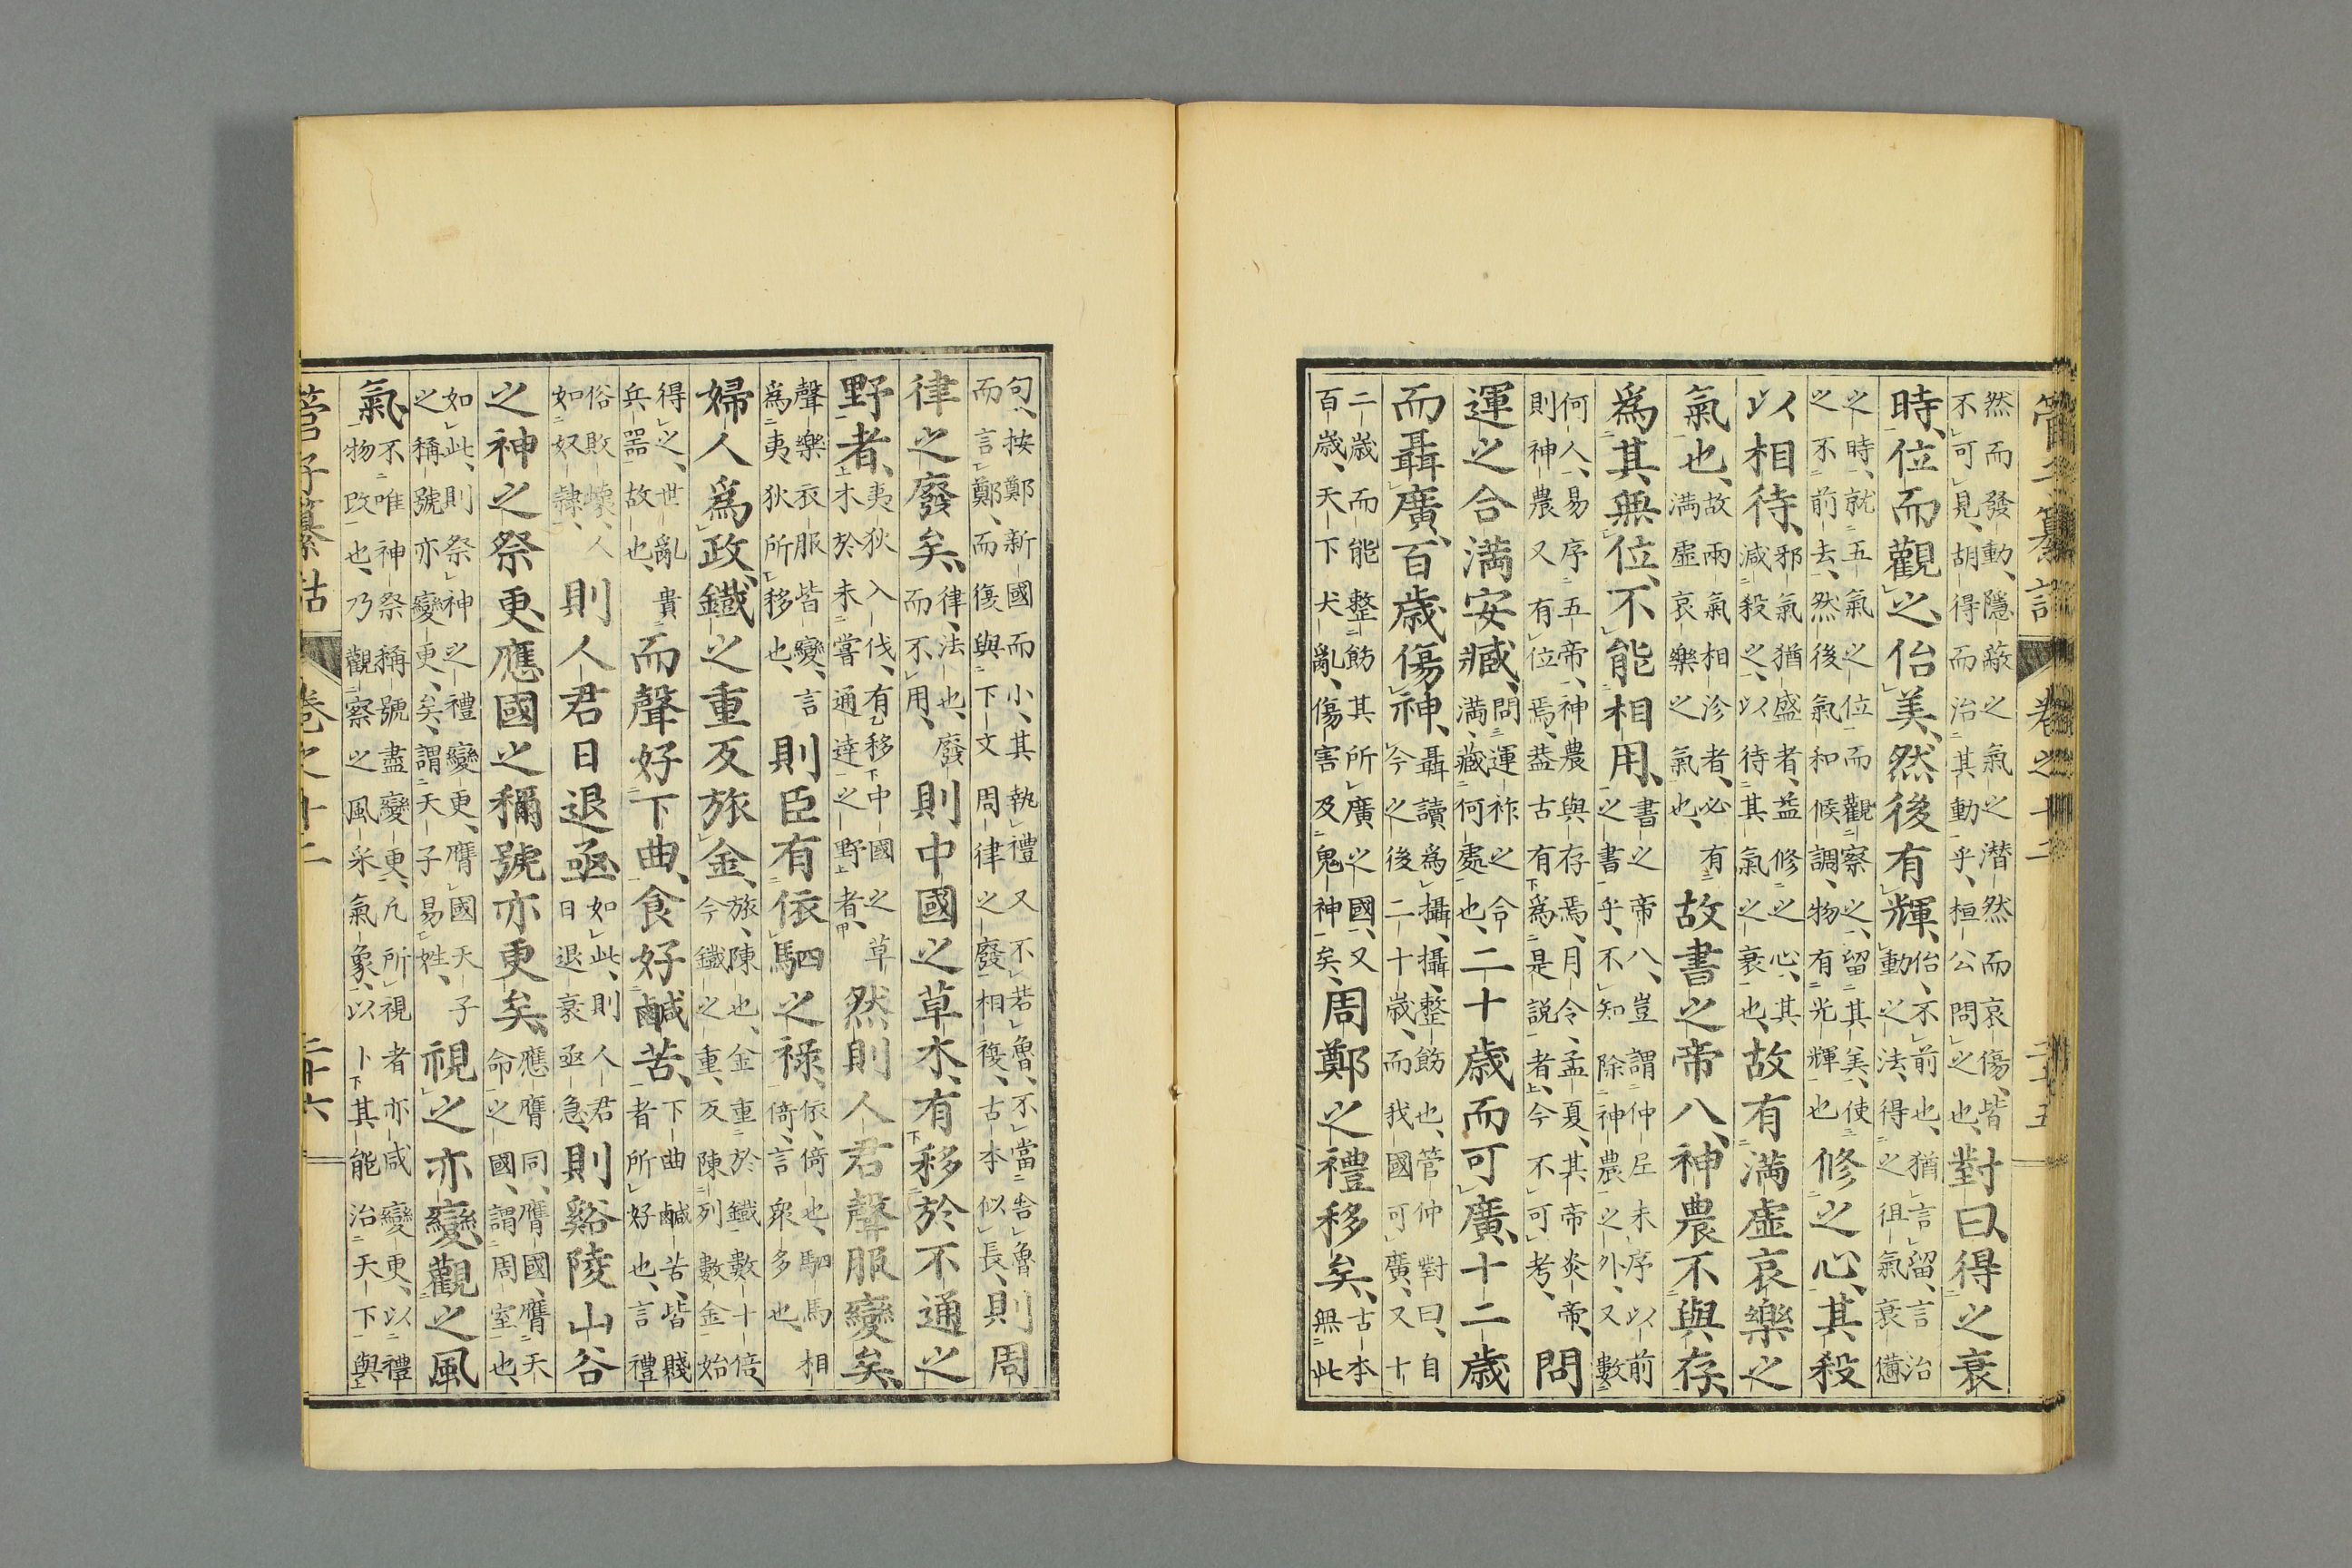 管子纂詁 卷之十二 二十五
然而發動、隱蔽之氣之潜然而哀傷、皆不可見、胡得而治其動乎、桓公問之也、對曰、得之衰
時、位而觀之、佁美、然後有輝、佁、不前也、猶言留、言治動之法、得之徂氣衰憊
之時、就五氣之位而觀察之、留其美、使之不前去、然後氣和候調、物有光輝也修之心、其殺
以相待、邪氣猶盛者、益修之心、其減殺之、以待其氣之衰也、故有滿虛哀樂之
氣也、故兩氣相沴者、必有滿虛哀樂之氣也、故書之帝八、神農不與存、
爲其無位、不能相用、書之帝八、豈謂仲𡰥未序以前之書乎、不知除神農之外、又數
何人、易序五帝、神農與存焉、月令、孟夏、其帝炎帝、則神農又有位焉、葢古有爲是説者、今不可考、問
運之合滿安臧、問運祚之合滿、藏何處也、二十歲而可廣、十二歲
而聶廣、百歲傷神、聶讀爲攝、攝、整飭也、管仲對曰、自今之後二十歲、而我國可廣、又十
二歲而能整飭其所廣之國、又百歲、天下大亂、傷害及鬼神矣、周鄭之禮移矣、古本無此
句、按鄭新國而小、其執禮又不若魯、不當舍魯而言鄭、而復與下文周律之廢相複、古本似長、則周
律之廢矣、律、法也、廢而不用、則中國之草木、有移於不通之
野者、夷狄入伐、有移中國之草木於未嘗通達之野者、然則人君聲服變矣、
聲樂衣服皆變、言爲夷狄所移也、則臣有依駟之祿、依、倚也、駟馬相倚、言衆多也、
婦人爲政、鐵之重反旅金、旅、陳也、金重於鐵數十倍、今鐵之重、反陳列數金、始
得之、世亂貴兵器故也、而聲好下曲、食好鹹苦、下曲鹹苦、皆賤者所好也、言禮
俗敗壞、人如奴隸、則人君日退亟、如此、則人君日退衰亟急、則谿陵山谷
之神之祭更、應國之稱號亦更矣、應膺同、膺國、膺天命之國、謂周室也、
如此、則祭神之禮變更、膺國天子之稱號亦變更矣、謂天子易姓、視之亦變、觀之風
氣、不唯神祭稱號盡變更、凢所視者亦咸變更、以禮物改也、乃觀察之風采氣象、以卜其能治天下與
管子纂詁 卷之十二 二十六